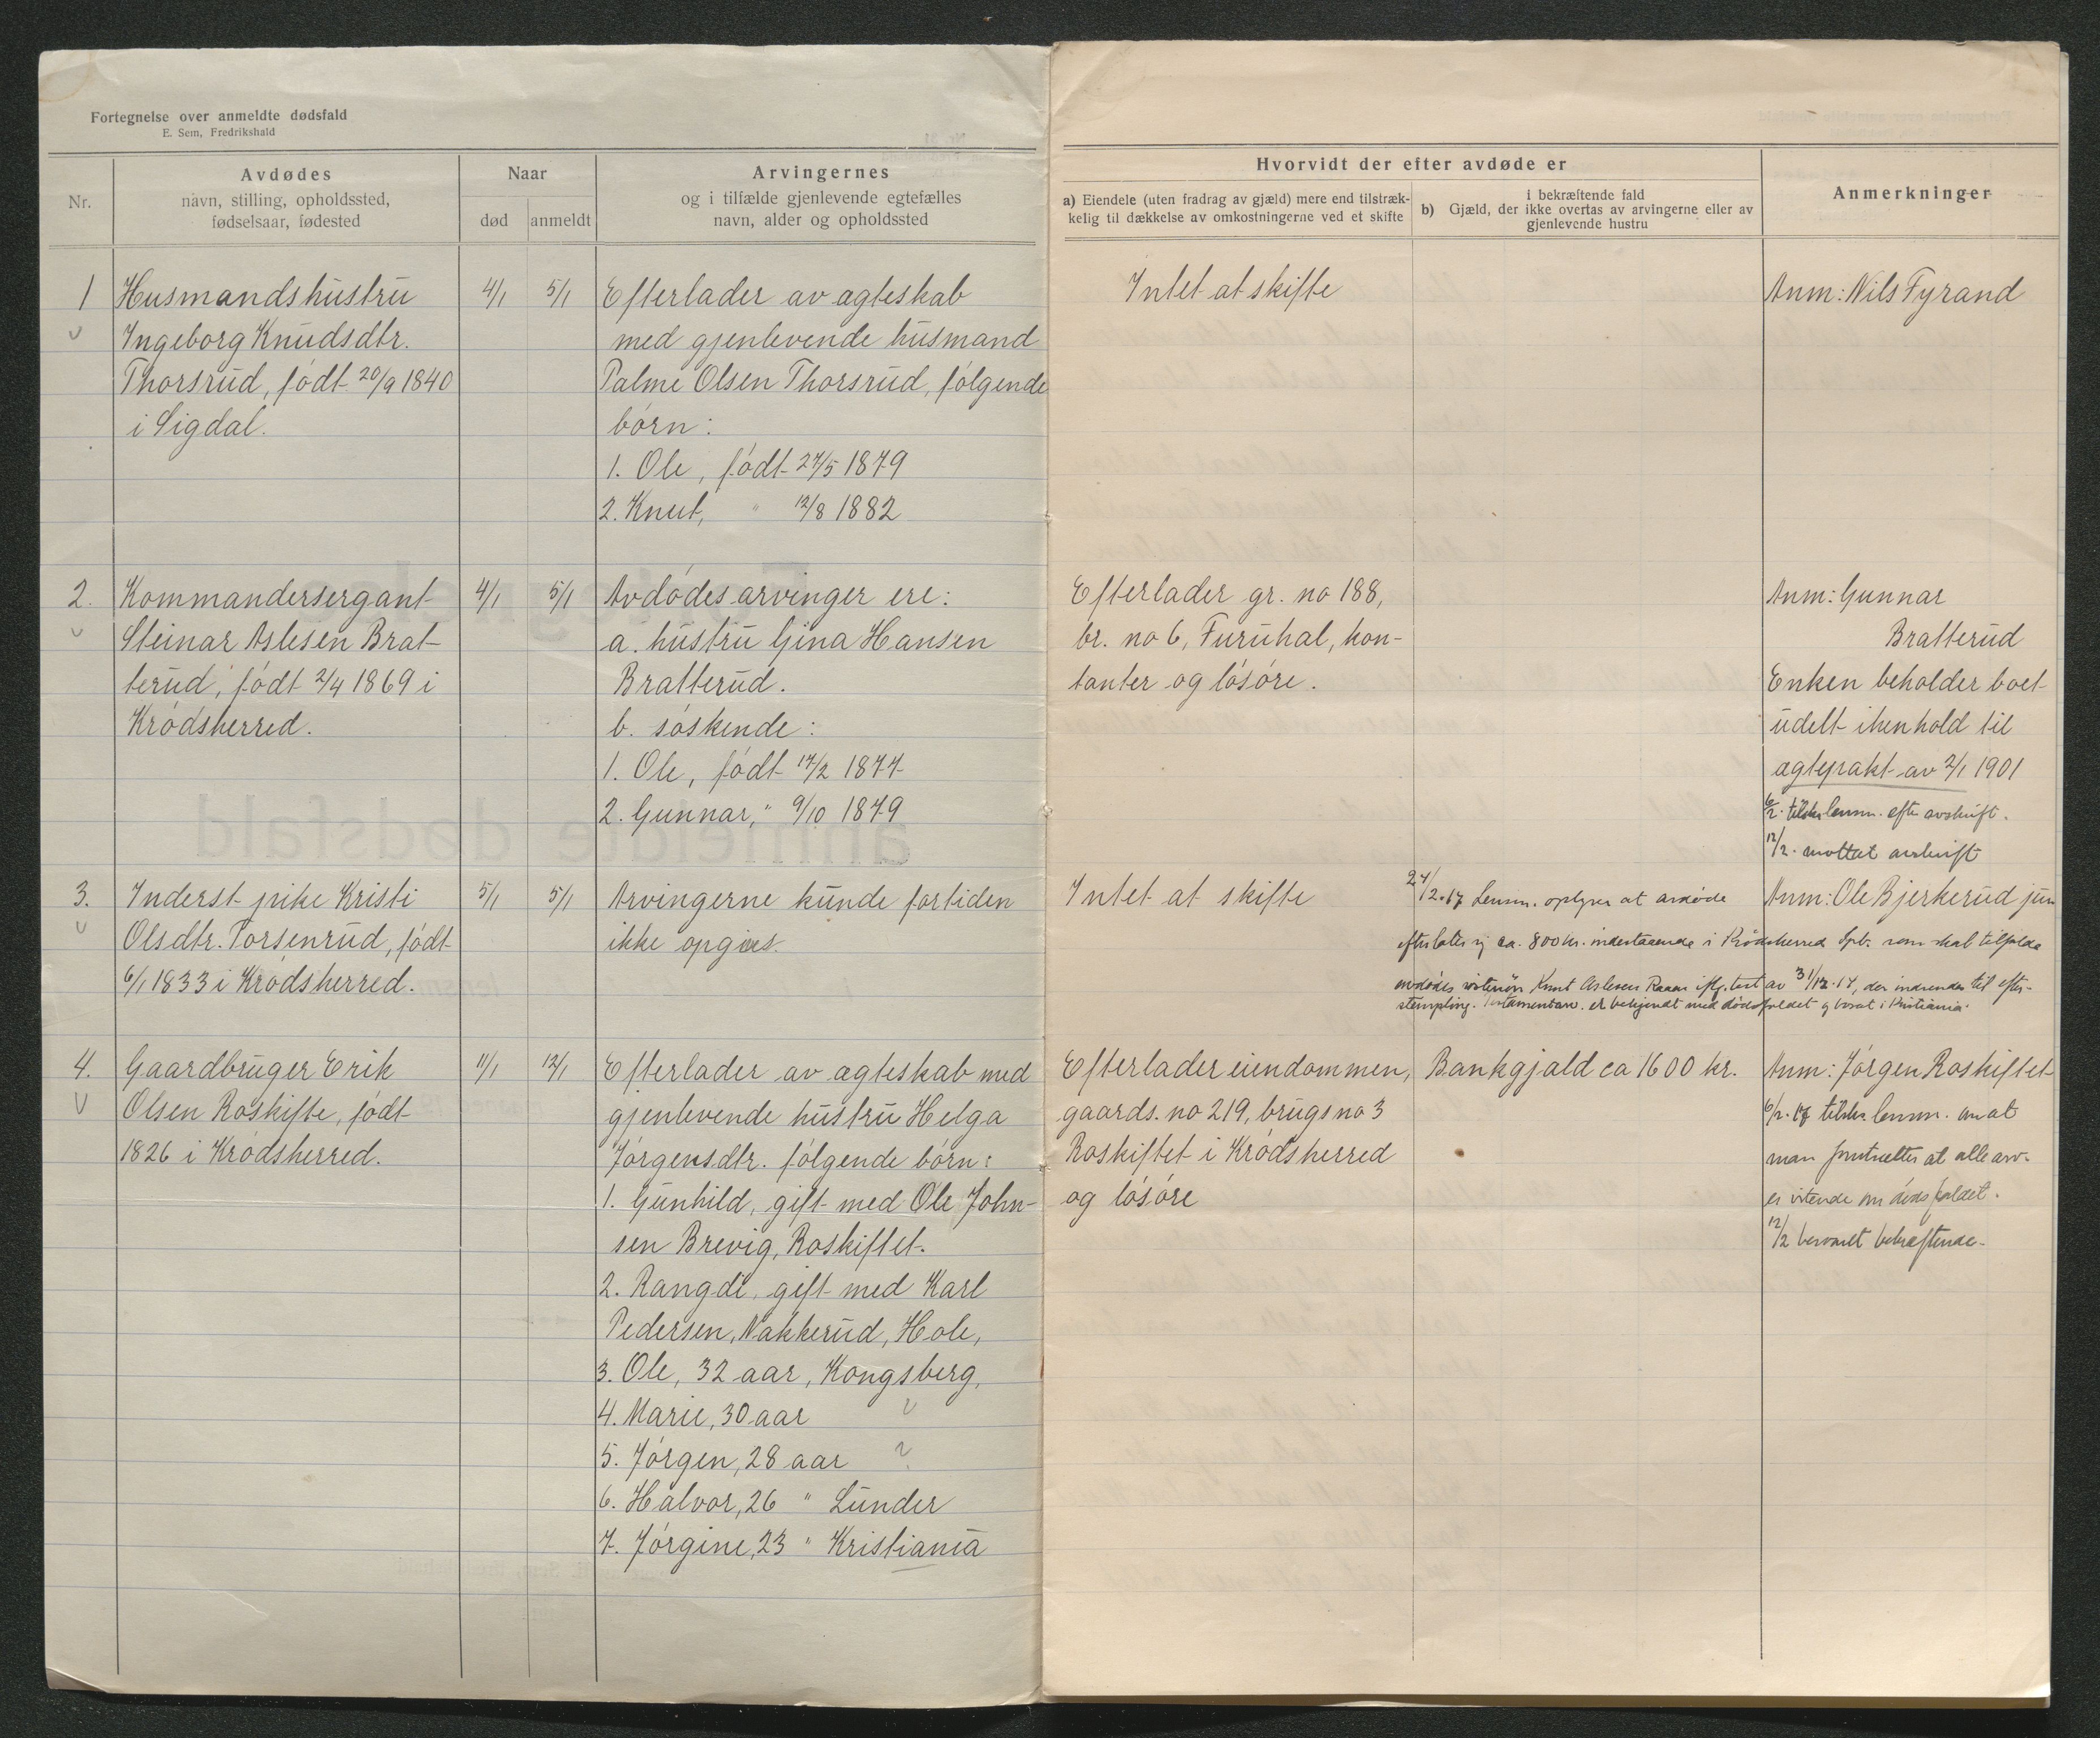 Fortegnelse over anmeldte dødsfald
E. Sem, Fredrikshald
Nr.
Avdødes
navn, stilling, opholdssted,
fødselsaar, fødested
Naar
død
anmeldt
Arvingernes
og i tilfælde gjenlevende egtefælles
navn, alder og opholdssted
Hvorvidt der efter avdøde er
a) Eiendele (uten fradrag av gjæld) mere end tilstræk-
kelig til dækkelse av omkostningerne ved et skifte
i bekræftende fald
b) Gjæld, der ikke overtas av arvingerne eller av
gjenlevende hustru
Anmerkninger
1
Husmandshustru
Ingeborg Knudsdtr.
Thorsrud, født 20/9 1840
i Sigdal.
4/1
5/1
Efterlader av ægteskab
med gjenlevende husmand
Palme Olsen Thorsrud, følgende
børn:
1. Ole, født 27/5 1879
2. Knut, " 12/8 1882
Intet at skifte
Anm: Nils Fyrand
2.
Kommandersergant
Steinar Aslesen Brat-
terud, født 2/4 1869 i
Krødsherred.
4/1
5/1
Avdødes arvinger ere:
a. hustru Gina Hansen
Bratterud.
b. søskende:
1. Ole, født 17/2 1877
2. Gunnar, " 9/10 1879
Efterlader gr. no 188,
br. no 6, Furuhal, kon-
tanter og løsøre.
Anm: Gunnar
Bratterud
Enken beholder boet
udelt ihenhold til
ægtepakt av 2/1 1901
6/2. tilskr. lensm. efter avskrift.
12/2. mottat avskrift
3.
Inderst pike Kristi
Olsdtr. Torsenrud, født
6/1 1833 i Krødsherred.
5/1
5/1
Arvingerne kunde fortiden
ikke opgives.
Intet at skifte
24/12.17 Lensm. oplyser at avdøde
Anm: Ole Bjerkerud jun
efterlater sig ca. 800 kr. indestaaende i Krødsherred Spb. som skal tilfalde
avdødes søstersøn Knut Aslesen Raaen iflg. test av 31/12.17, der indsendes til efter-
stempling. Testamentar. er bekjendt med dødsfaldet og bosat i Kristiania.
4.
Gaardbruger Erik
Olsen Roskifte, født
1826 i Krødsherred.
11/1
12/1
Efterlader av ægteskab med
gjenlevende hustru Helga
Jørgensdtr. følgende børn:
1. Gunhild, gift med Ole John-
sen Brevig, Roskiftet.
2. Rangdi, gift med Karl
Pedersen, Nakkerud, Hole,
3. Ole, 32 aar, Kongsberg,
4. Marie, 30 aar
5. Jørgen, 28 aar ?
6. Halvor, 26 " Lunder
7. Jørgine, 23 " Kristiania
Efterlader eiendommen,
gaards. no 219, brugs no 3
Roskiftet i Krødsherred
og løsøre
Bankgjæld ca 1600 kr.
Anm: Jørgen Roskiftet
6/2.17 tilskr. lensm. om at
man forutsetter at alle arv.
er vitende om dødsfaldet.
12/2 besvaret bekræftende.